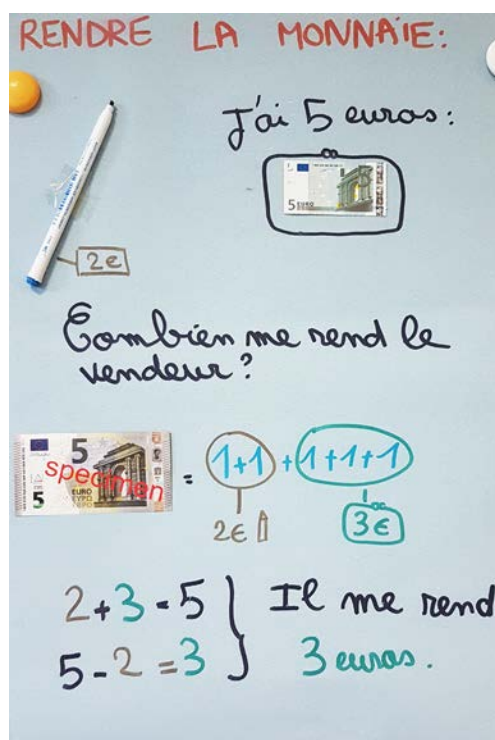 RENDRE LA MONNAIE:
J'ai 5 euros:
5 EURO
2€
Combien me rend le
vendeur?
5
specimen
EURO
ΕΥΡΩ
5
= 1+1 + 1+1+1
2€ 3€
2+3=5
5-2=3
Il me rend
3 euros.